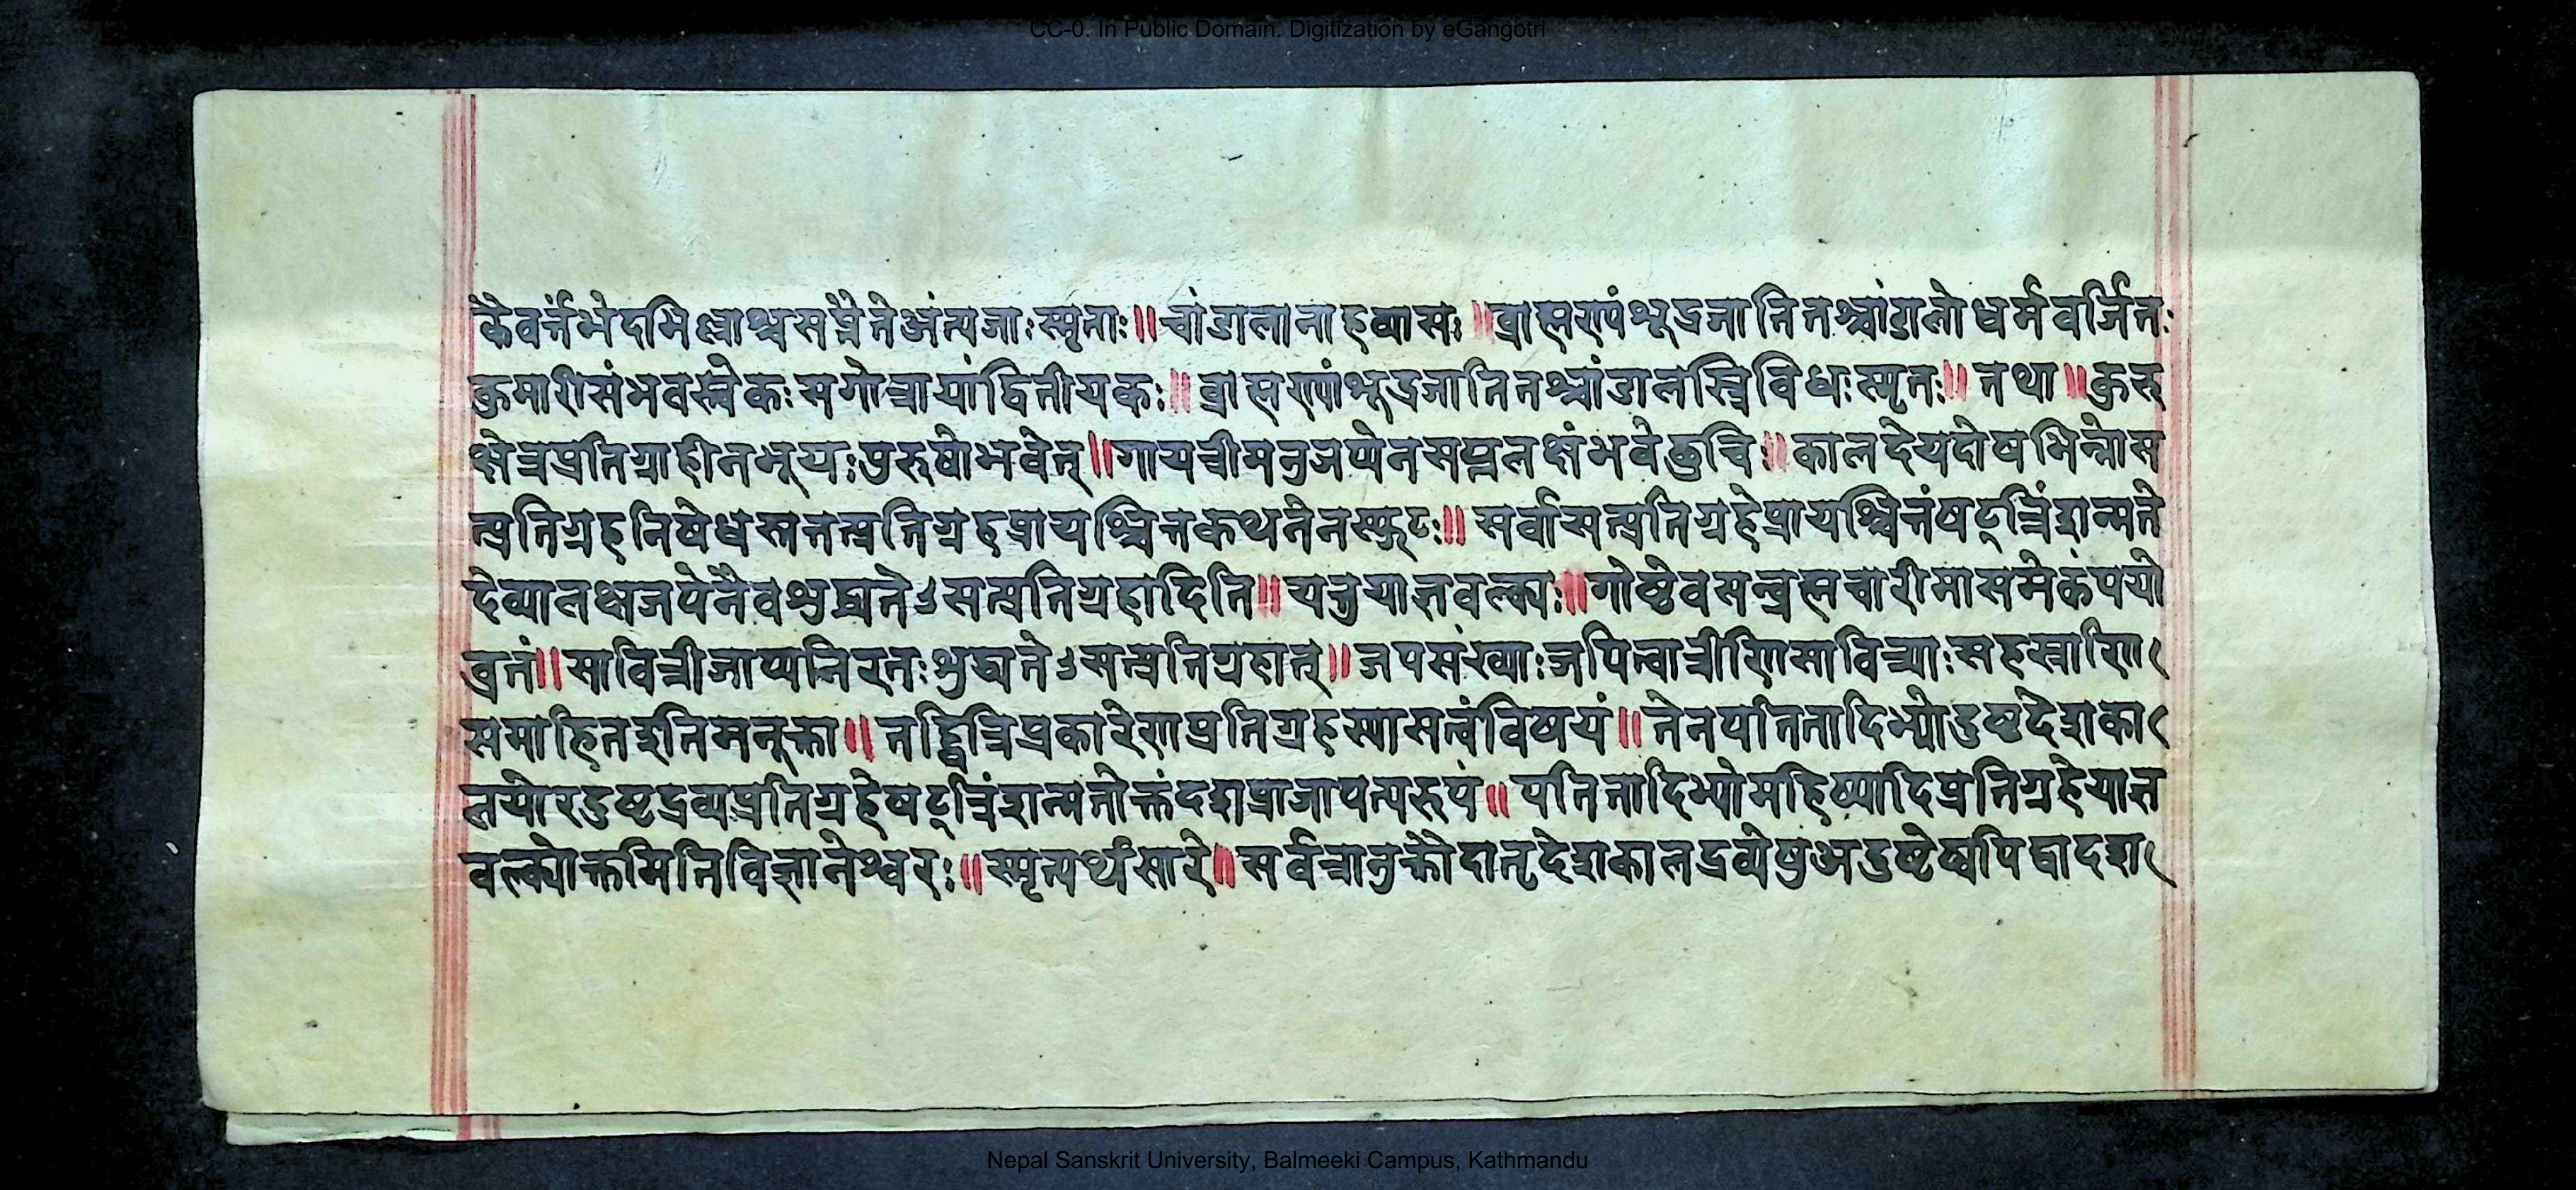 CC-0. In Public Domain. Digitization by eGangotri
कैवर्त्तभेदभिल्लाश्च सप्तैते अंत्यजाः स्मृताः ॥ चांडालानाह व्यासः ॥ ब्राह्मण्यां शूद्रजातितश्चांडालो धर्मवर्जितः
कुमारीसंभवस्त्वेकः सगोत्रायां द्वितीयकः ॥ ब्राह्मण्यां शूद्रजातितश्चांडालस्त्रिविधः स्मृतः ॥ तथा ॥ कुरु
क्षेत्रप्रतिग्राही न भूयः पुरुषो भवेत् ॥ गायत्रीमनुजप्येन सप्तलक्षं भवेछुचि ॥ कालदेयदोषभिन्नोस
त्प्रतिग्रहनिषेधस्तत्तत्प्रतिग्रहप्रायश्चित्तकथनेन स्फुटः ॥ सर्वासत्प्रतिग्रहे प्रायश्चित्तं षट्त्रिंशन्मते
देव्यालक्षजपेनैव शुद्ध्यतेऽसत्प्रतिग्रहादिति ॥ यत्तु याज्ञवल्क्यः ॥ गोष्ठे वसन्ब्रह्मचारी मासमेकं पयो
व्रतं ॥ सावित्रीजाप्यनिरतः शुद्ध्यतेऽसत्प्रतिग्रहात् ॥ जपसंख्याः जपित्वा त्रीणि सावित्र्याः सहस्राणि
समाहित इति मनूक्ता ॥ तद्द्वित्रिप्रकारेण प्रतिग्रहस्यासत्त्वं विषयं ॥ तेन पतितादिभ्यो दुष्टदेशका
लयोरदुष्टद्रव्यप्रतिग्रहे षट्त्रिंशन्मतोक्तं दशप्राजापत्यरूपं ॥ पतितादिभ्यो महिष्यादिप्रतिग्रहे याज्ञ
वल्क्योक्तमिति विज्ञानेश्वरः ॥ स्मृत्यर्थसारे ॥ सर्वत्रानुक्तौ दातृदेशकालद्रव्येषु अदुष्टेष्वपि द्वादश
Nepal Sanskrit University, Balmeeki Campus, Kathmandu